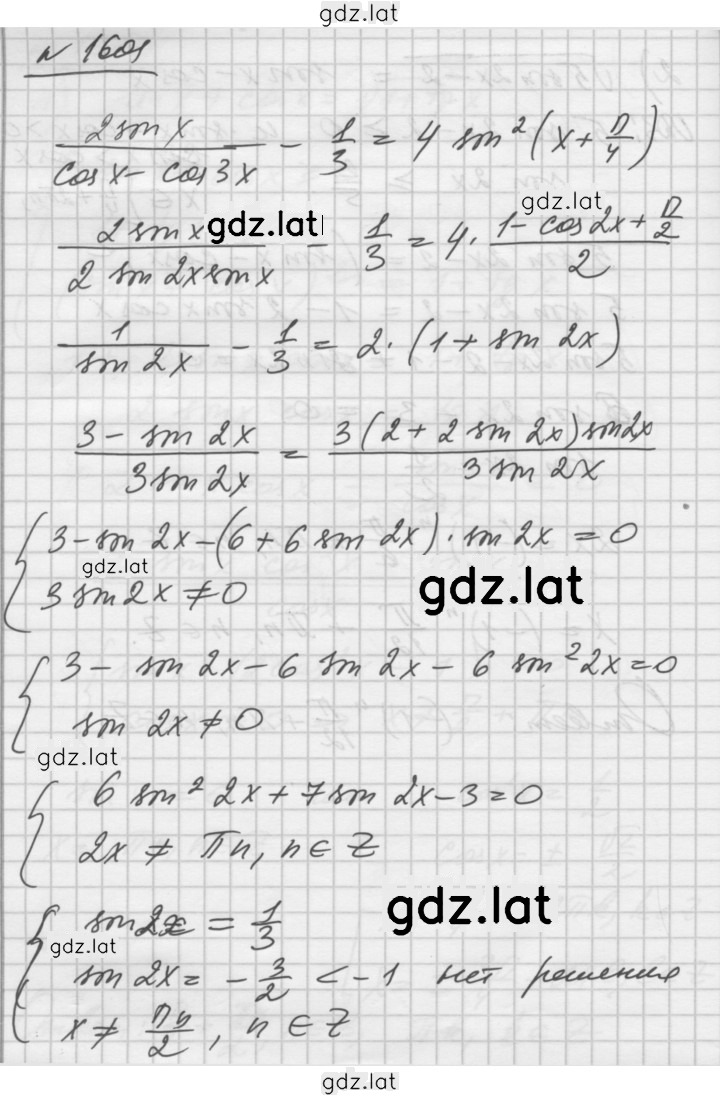 gdz.lat
N 1601
2 sin x / (cos x - cos 3x) - 1/3 = 4 sin²(x + π/4)
2 sin x / (2 sin 2x sin x) - 1/3 = 4 · (1 - cos 2x + π/2) / 2
gdz.lat
1 / sin 2x - 1/3 = 2 · (1 + sin 2x)
(3 - sin 2x) / (3 sin 2x) = 3(2 + 2 sin 2x) sin 2x / (3 sin 2x)
{ 3 - sin 2x - (6 + 6 sin 2x) · sin 2x = 0
gdz.lat
3 sin 2x ≠ 0
gdz.lat
{ 3 - sin 2x - 6 sin 2x - 6 sin² 2x = 0
sin 2x ≠ 0
gdz.lat
{ 6 sin² 2x + 7 sin 2x - 3 = 0
2x ≠ πn, n ∈ Z
gdz.lat
{ sin 2x = 1/3
gdz.lat
sin 2x = - 3/2 < -1 нет решения
x ≠ πn/2, n ∈ Z
gdz.lat